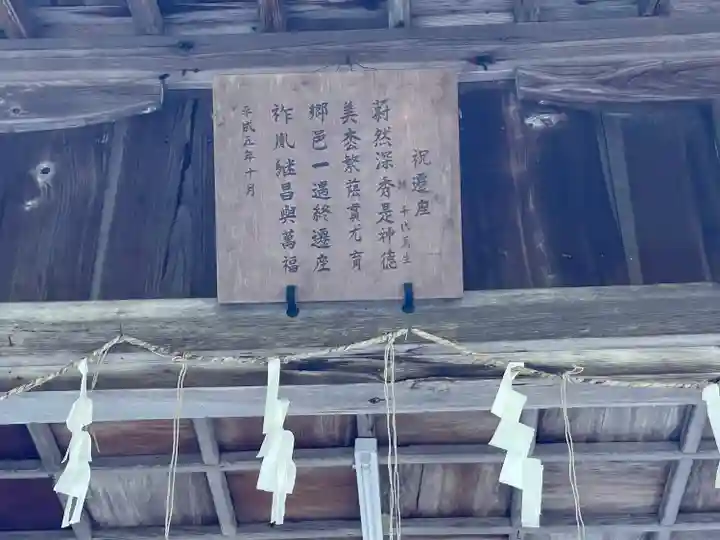 祝遷座
千代萬生
蔚然深秀是神德
美林繁蔭貫尤育
鄉邑一遇終遷座
祚胤継昌與萬福
平成五年十月